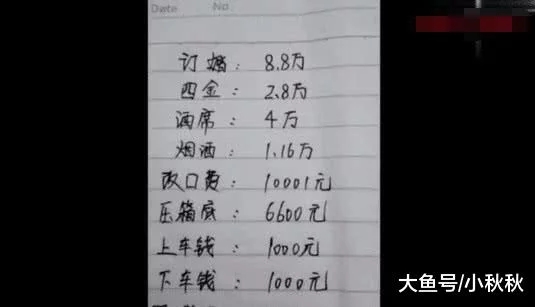 Date No
订婚： 8.8万
四金： 2.8万
酒席： 4万
烟酒： 1.16万
改口费： 10001元
压箱底： 6600元
上车钱： 1000元
下车钱： 1000元
大鱼号/小秋秋